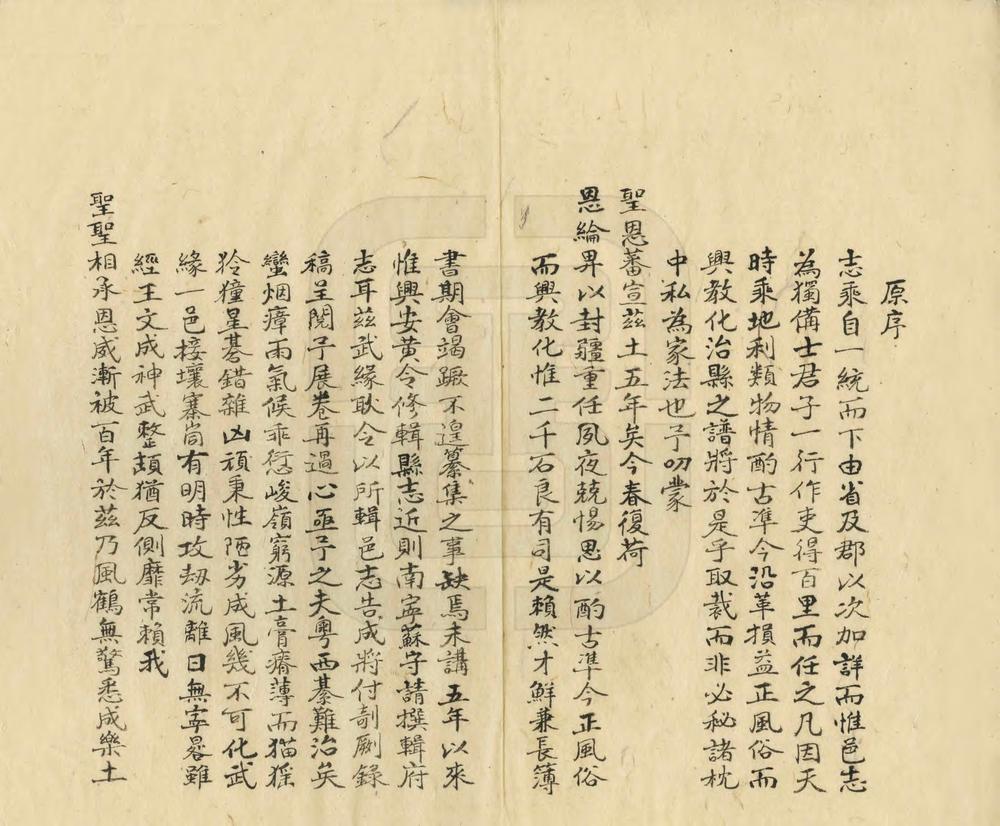 原序
志乘自一統而下由省及郡以次加詳而惟邑志
為獨備士君子一行作吏得百里而任之凡因天
時乘地利類物情酌古準今沿革損益正風俗而
興教化治縣之譜將於是乎取裁而非必秘諸枕
中私為家法也予叨蒙
聖恩蕃宣茲土五年矣今春復荷
恩綸畀以封疆重任夙夜兢惕思以酌古準今正風俗
而興教化惟二千石良有司是賴然才鮮兼長簿
書期會竭蹶不遑纂集之事缺焉未講五年以來
惟興安黃令修輯縣志近則南寍蘇守請撰輯府
志耳茲武緣耿令以所輯邑志告成將付剞劂錄
稿呈閱予展卷再過心亟予之夫粵西綦難治矣
蠻烟瘴雨氣候乖愆峻嶺窮源土膏瘠薄而猫猺
狑獞星碁錯雜凶頑秉性陋劣成風幾不可化武
緣一邑接壤寨峝有明時攻劫流離日無寧晷雖
經王文成神武整頓猶反側靡常賴我
聖聖相承恩威漸被百年於茲乃風鶴無驚悉成樂土